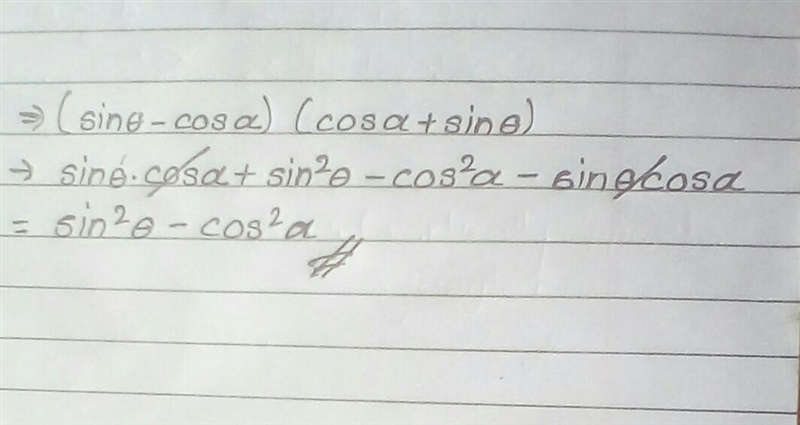 ⇒ (sinθ - cosα) (cosα + sinθ)
→ sinθ · cosα + sin²θ - cos²α - sinθcosα
= sin²θ - cos²α